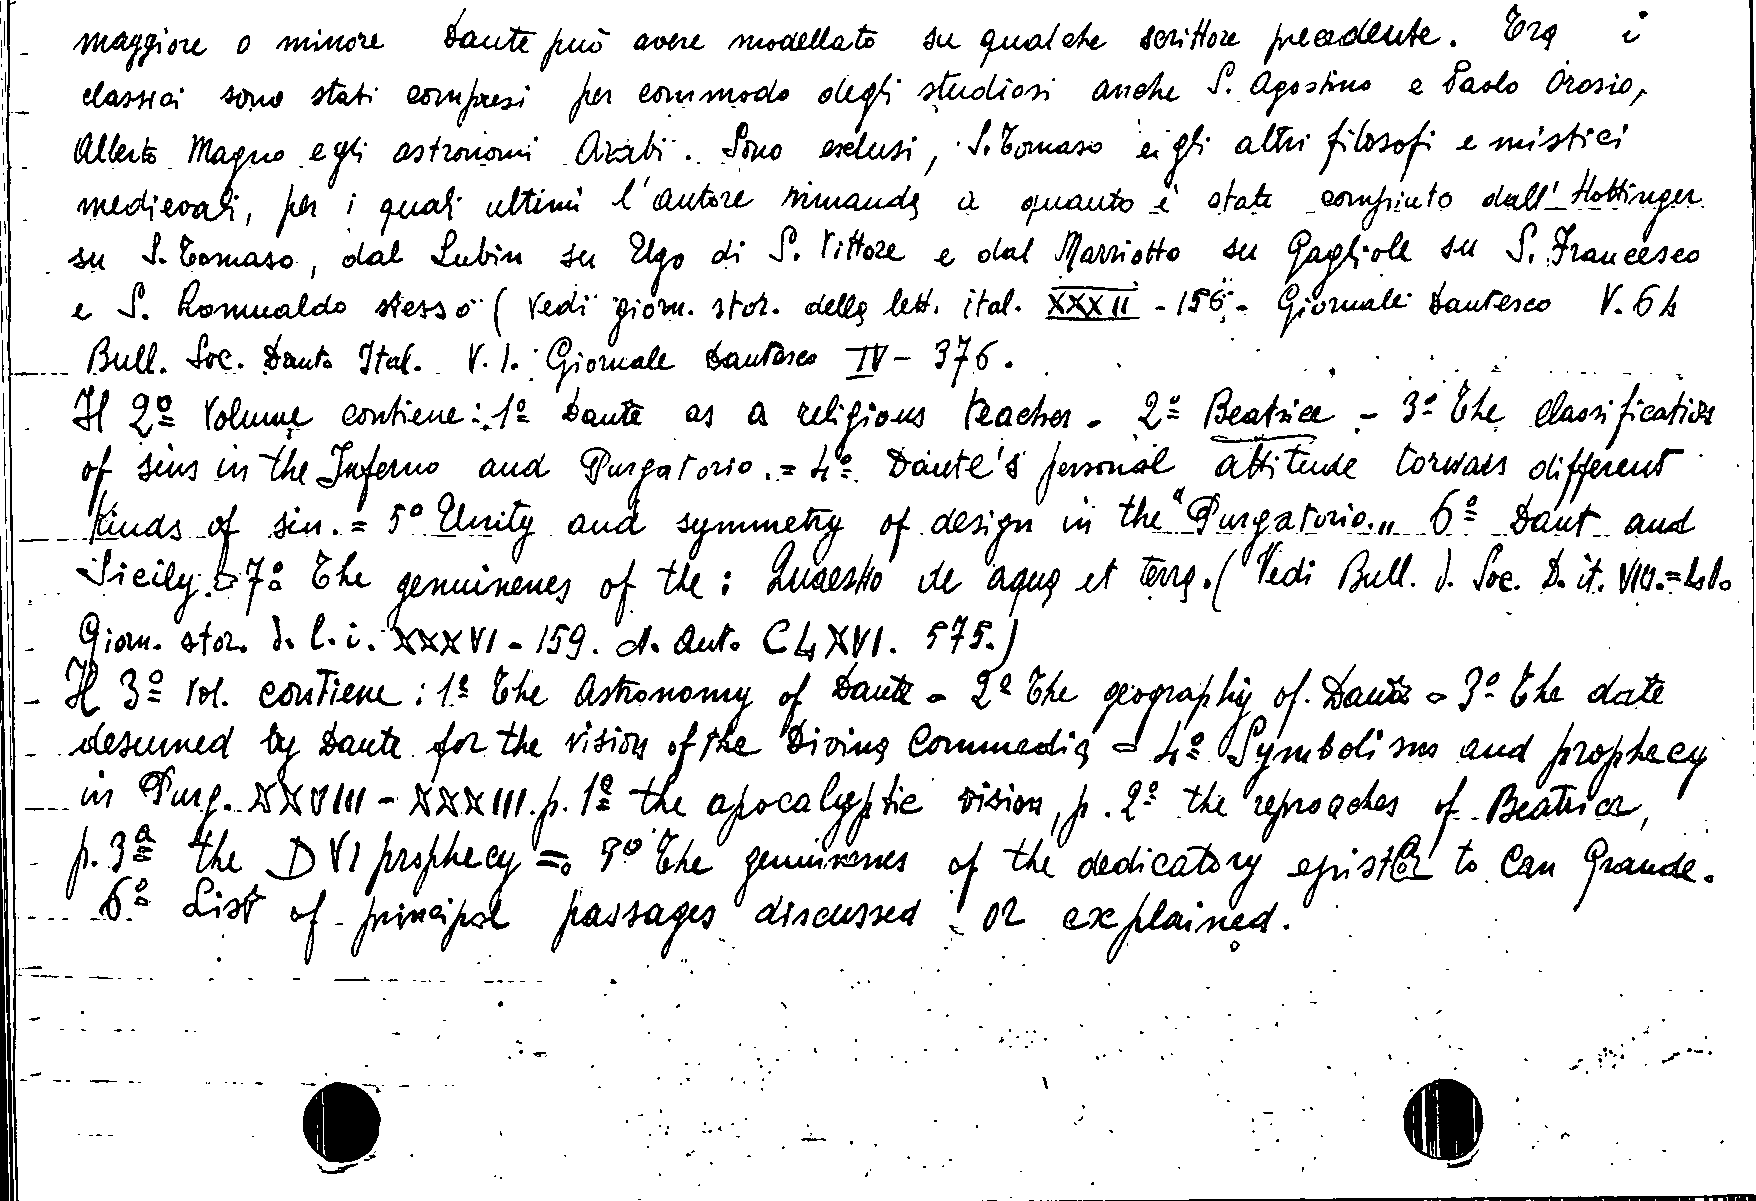 maggiore o minore Dante può avere modellato su qualche scrittore precedente. Tra i
classici sono stati compresi per commodo degli studiosi anche S. Agostino e Paolo Orosio,
Alberto Magno e gli astronomi Arabi. Sono esclusi, S. Tomaso e gli altri filosofi e mistici
medievali, per i quali ultimi l'autore rimanda a quanto è stato compiuto dall' Hottinger
su S. Tomaso, dal Lubin su Ugo di S. Vittore e dal Marriotto su Gagliole su S. Francesco
e S. Romualdo stesso (Vedi giorn. stor. della lett. ital. XXXII - 156 - Giornale Dantesco V. 64
Bull. Soc. Dante Ital. V. 1. Giornale Dantesco IV - 376.
Il 2º Volume contiene: 1º Dante as a religious teacher - 2º Beatrice - 3º The classification
of sins in the Inferno and Purgatorio. = 4º Dante's personal attitude torwars different
Kinds of sin. = 5º Unity and symmetry of design in the "Purgatorio" 6º Dant and
Sicily = 7º The genuinenes of the: Quaestio de aqua et terra. (Vedi Bull. d. Soc. D. it. VIII. =
Giorn. stor. d. l. i. XXXVI - 159. d. Ant. 575.)
Il 3º Vol. contiene: 1º The Astronomy of Dante - 2º The geography of Dante - 3º The date
desumed by Dante for the vision of the Divina Commedia = 4º Symbolism and prophecy
in Purg. XXVIII - XXXIII. p. 1ª the apocalyptic vision, p. 2ª the reproaches of Beatrice,
p. 3ª the DVI prophecy = 5º The genuinenes of the dedicatory epistle to Can Grande.
6º List of principal passages discussed or explained.